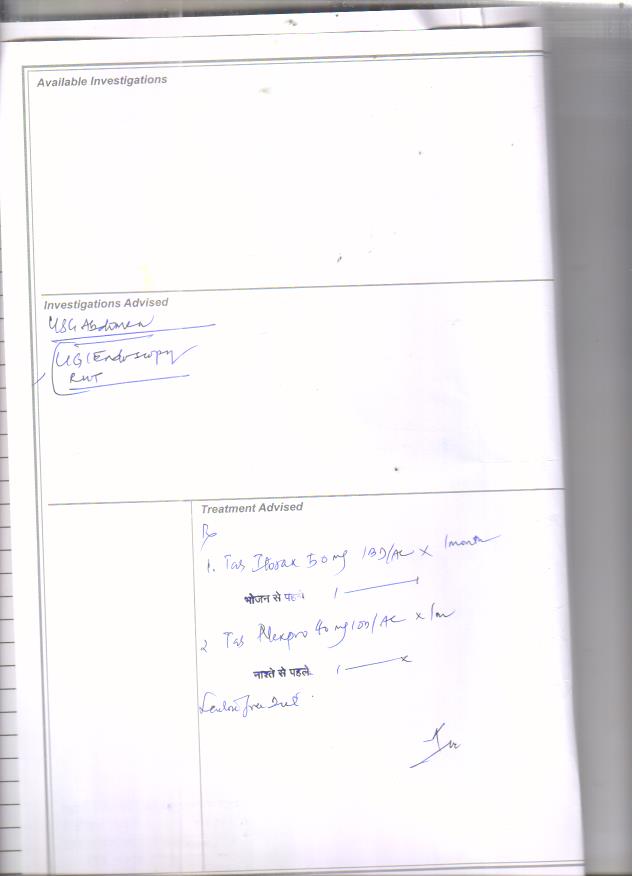 Available Investigations
Investigations Advised
USG Abdomen
UGI Endoscopy
RUT
Treatment Advised
Rx
1. Tab Itorax 50 mg 1BD/AC x 1month
भोजन से पहले 1 — 1
2 Tab Nexpro 40 mg 1OD/AC x 1m
नाश्ते से पहले. 1 — x
Lactose free diet